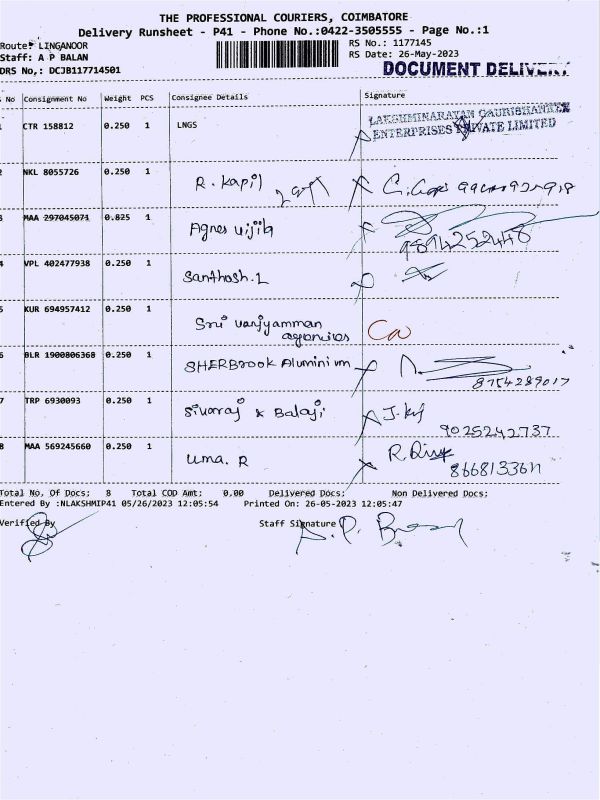 THE PROFESSIONAL COURIERS, COIMBATORE
Delivery Runsheet - P41 - Phone No.:0422-3505555 - Page No.:1
Route: LINGANOOR
RS No.: 1177145
Staff: A P BALAN
RS Date: 26-May-2023
DRS No,: DCJB117714501
DOCUMENT DELIVERY
S No Consignment No Weight PCS Consignee Details Signature
1 CTR 158812 0.250 1 LNGS
LAKSHMINARAYAN GAURISHANKER
ENTERPRISES PRIVATE LIMITED
2 NKL 8055726 0.250 1 R. Kapil
3 MAA 297045071 0.825 1 Agnes vijila 9894252448
4 VPL 402477938 0.250 1 Santhosh.L
5 KUR 694957412 0.250 1 Sri vanjyamman
agencies
6 BLR 1900806368 0.250 1 SHERBrook Aluminium
8754289017
7 TRP 6930093 0.250 1 Sivaraj & Balaji
9025242737
8 MAA 569245660 0.250 1 Uma. R
Total No, Of Docs; 8 Total COD Amt; 0.00 Delivered Docs; Non Delivered Docs;
Entered By :NLAKSHMIP41 05/26/2023 12:05:54 Printed On: 26-05-2023 12:05:47
Verified By Staff Signature